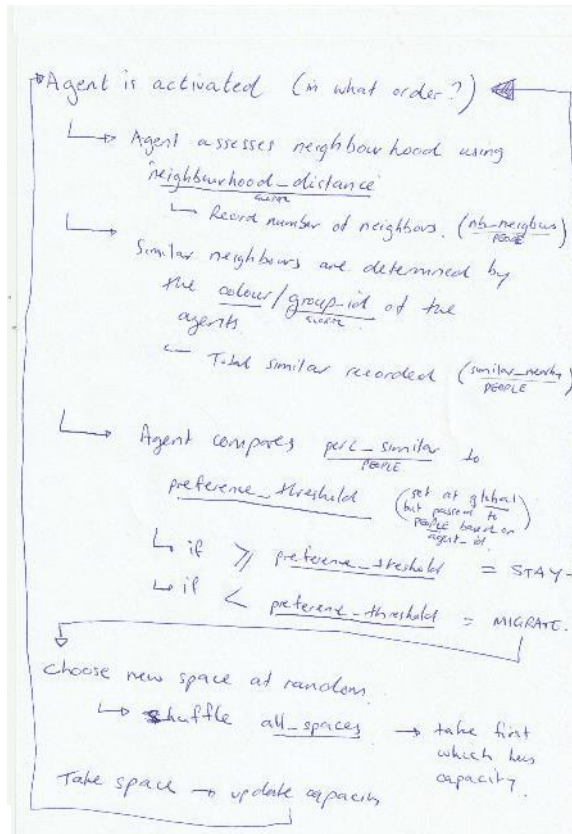 Agent is activated (in what order?)
Agent assesses neighbourhood using
neighbourhood_distance
GLOBAL
Record number of neighbors. (nb_neighbors)
PEOPLE
Similar neighbours are determined by
the colour/group_id of the
GLOBAL
agents.
Total similar recorded (similar_nearby)
PEOPLE
Agent compares perc_similar to
PEOPLE
preference_threshold (set at global
but passed to
PEOPLE based on
agent_id.)
if ≥ preference_threshold = STAY
if < preference_threshold = MIGRATE.
Choose new space at random.
Shuffle all_spaces → take first
which has
capacity.
Take space → update capacity